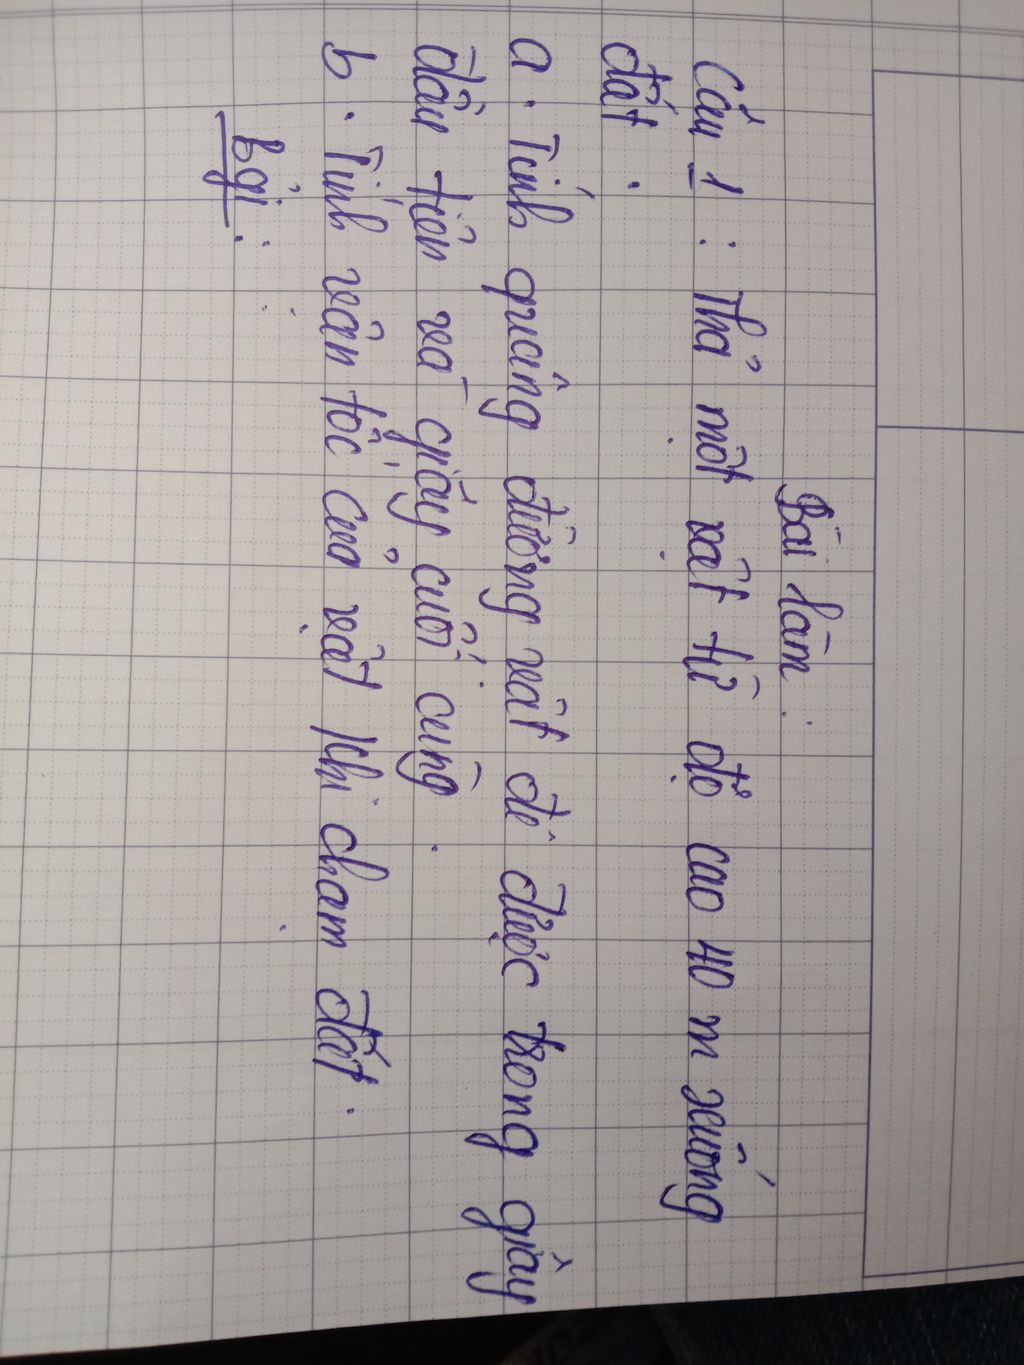 Bài làm :
Câu 1 : Thả một vật từ độ cao 40 m xuống
đất .
a . Tính quãng đường vật đi được trong giây
đầu tiên và giây cuối cùng .
b . Tính vận tốc của vật khi chạm đất .
bài :